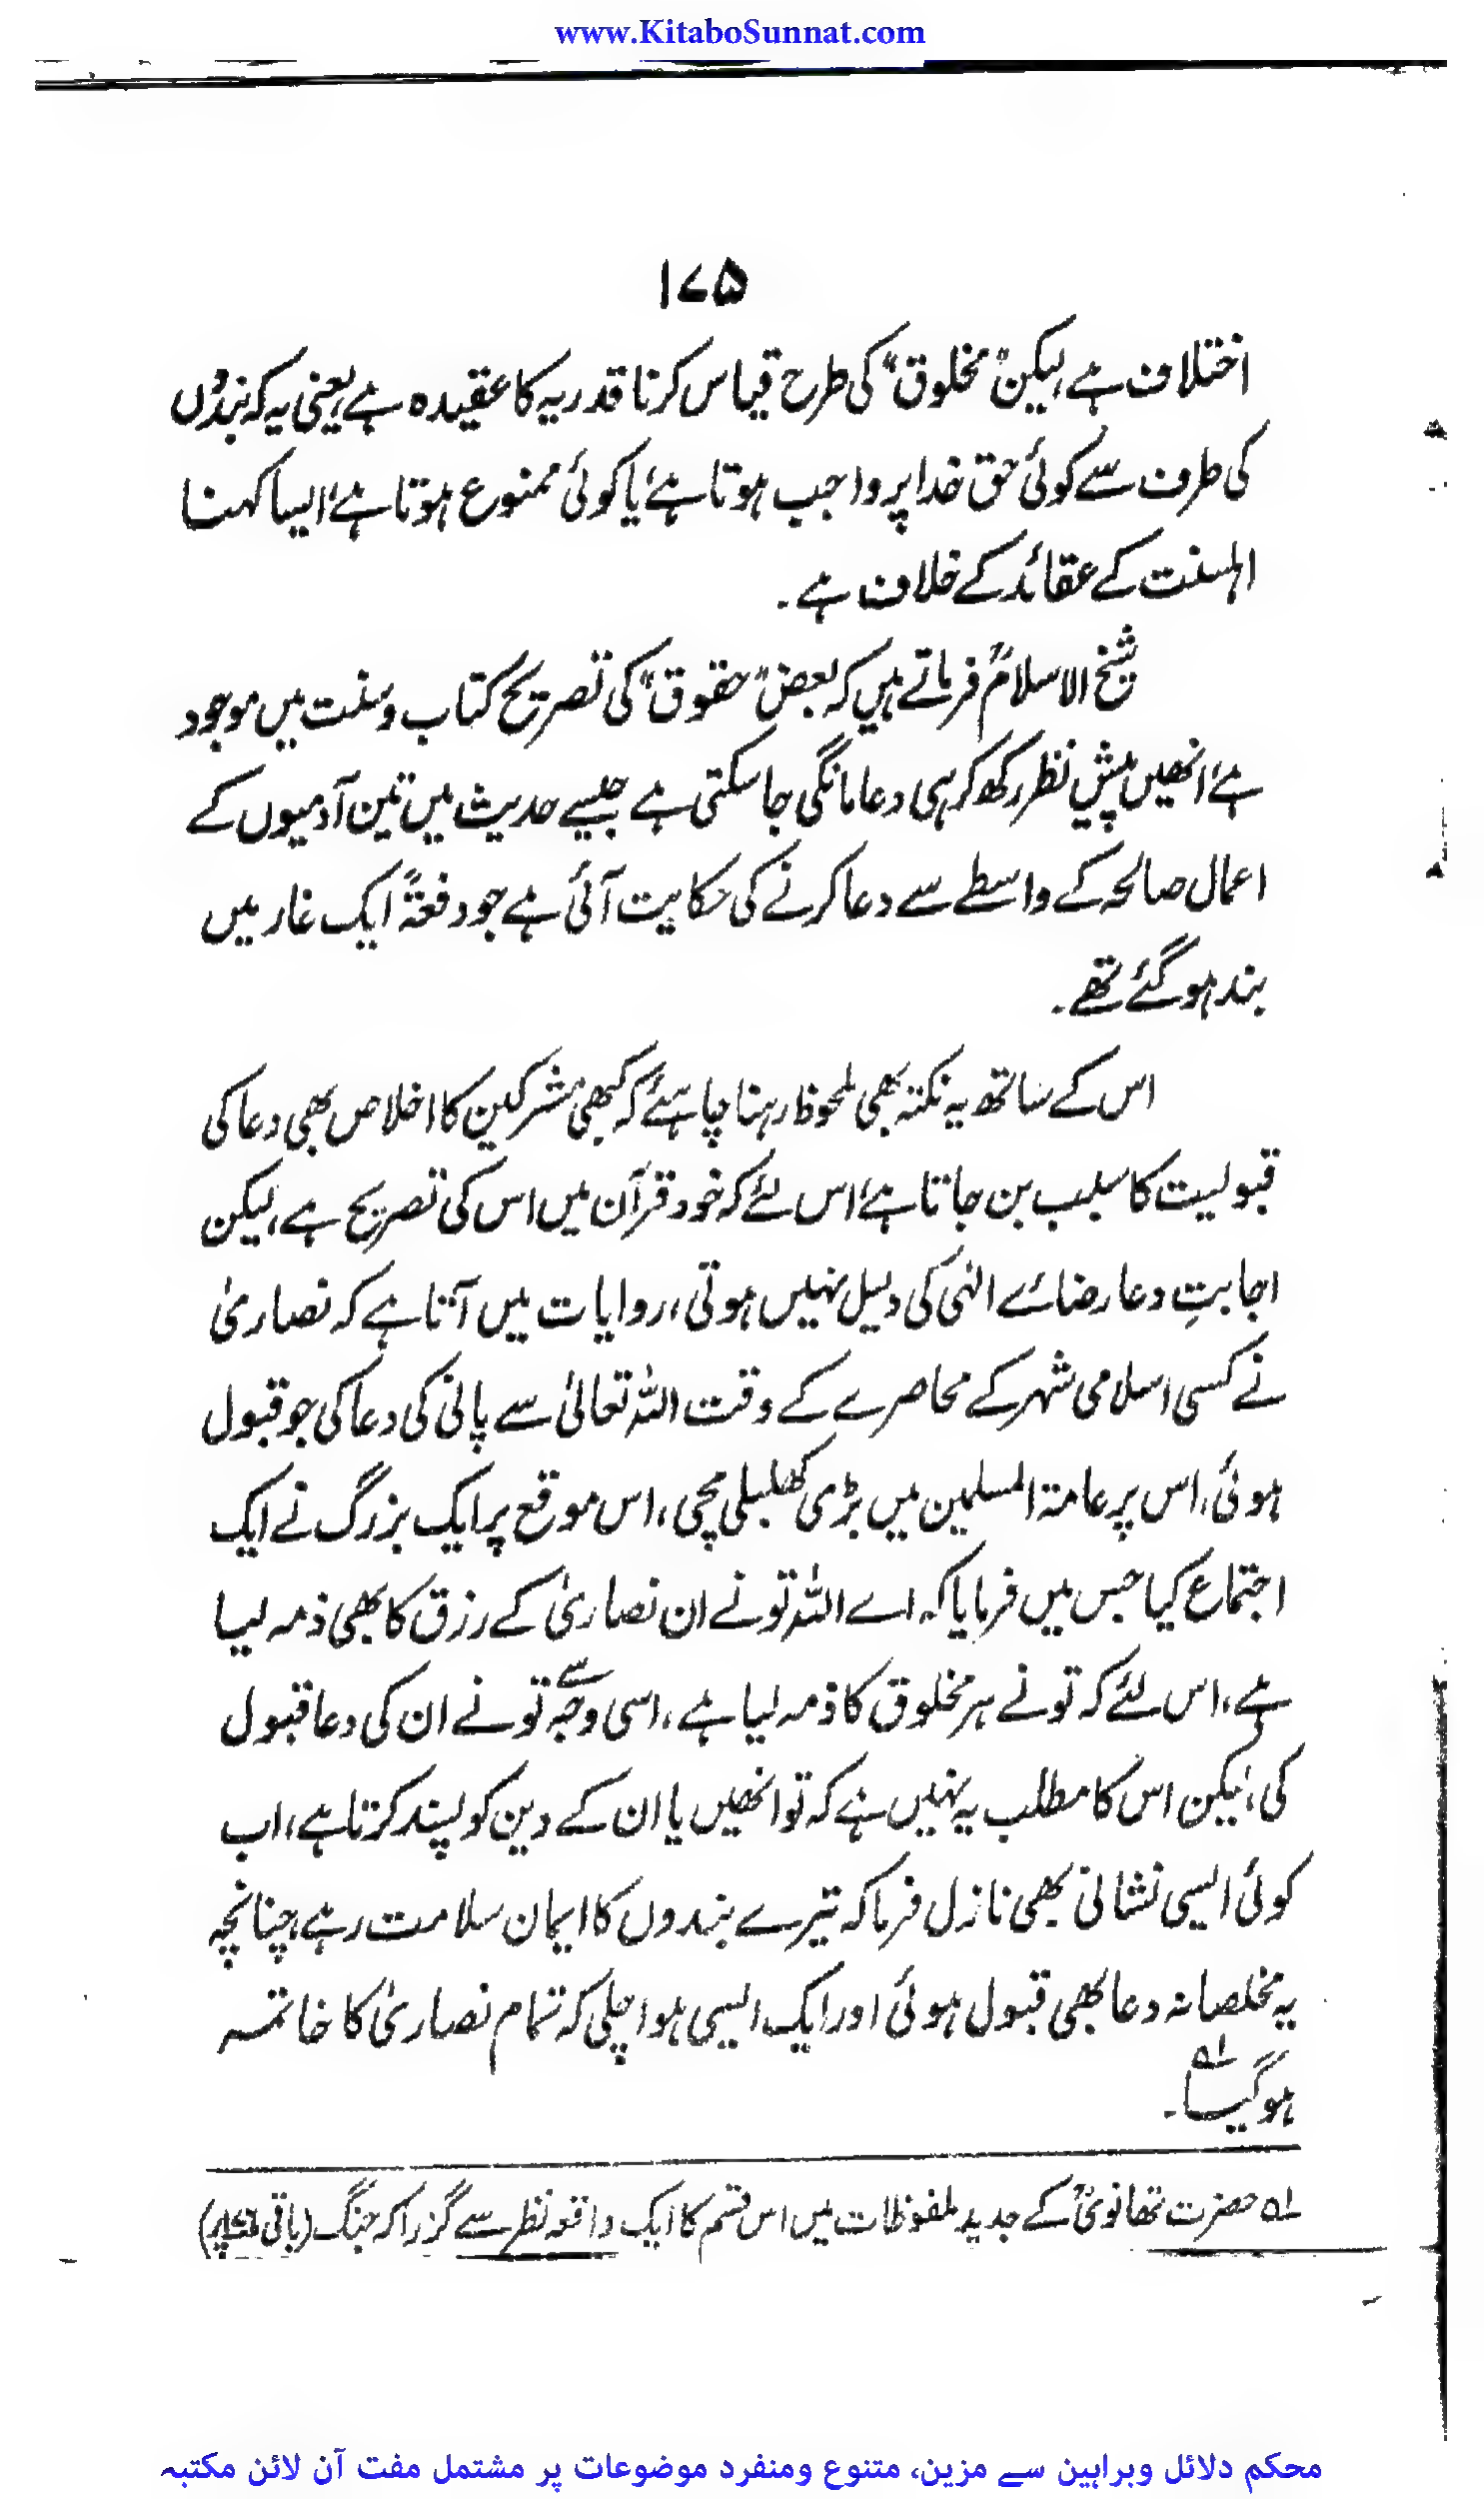 www.KitaboSunnat.com
۱۷۵
اختلاف ہے، لیکن "مخلوق" کی طرح قیاس کرنا قدریہ کا عقیدہ ہے، یعنی یہ کہ بندوں
کی طرف سے کوئی حق خدا پر واجب ہوتا ہے، یا کوئی ممنوع ہوتا ہے، ایسا کہنا
اہلسنت کے عقائد کے خلاف ہے۔
شیخ الاسلامؒ فرماتے ہیں کہ بعض "حقوق" کی تصریح کتاب و سنت میں موجود
ہے، انھیں پیش نظر رکھ کر ہی دعا مانگی جا سکتی ہے جیسے حدیث میں تین آدمیوں کے
اعمال صالحہ کے واسطے سے دعا کرنے کی حکایت آئی ہے جو دفعۃً ایک غار میں
بند ہو گئے تھے۔
اس کے ساتھ یہ نکتہ بھی ملحوظ رہنا چاہئے کہ کبھی مشرکین کا اخلاص بھی دعا کی
قبولیت کا سبب بن جاتا ہے، اس لئے کہ خود قرآن میں اس کی تصریح ہے، لیکن
اجابتِ دعا رضائے الٰہی کی دلیل نہیں ہوتی، روایات میں آتا ہے کہ نصاریٰ
نے کسی اسلامی شہر کے محاصرے کے وقت اللہ تعالیٰ سے پانی کی دعا کی جو قبول
ہوئی، اس پر عامۃ المسلمین میں بڑی کھلبلی مچی، اس موقع پر ایک بزرگ نے ایک
اجتماع کیا جس میں فرمایا کہ اے اللہ تو نے ان نصاریٰ کے رزق کا بھی ذمہ لیا
ہے، اس لئے کہ تو نے ہر مخلوق کا ذمہ لیا ہے، اسی وجہ سے تو نے ان کی دعا قبول
کی، لیکن اس کا مطلب یہ نہیں ہے کہ تو انھیں یا ان کے دین کو پسند کرتا ہے، اب
کوئی ایسی نشانی بھی نازل فرما کہ تیرے بندوں کا ایمان سلامت رہے، چنانچہ
یہ مخلصانہ دعا بھی قبول ہوئی اور ایک ایسی ہوا چلی کہ تمام نصاریٰ کا خاتمہ
ہو گیا۔ ؎۱
؎۱ حضرت تھانویؒ کے جدید ملفوظات میں اس قسم کا ایک واقعہ نظر سے گزرا کہ جنگ (باقی ص۱۷۶ پر)
محکم دلائل وبراہین سے مزین، متنوع ومنفرد موضوعات پر مشتمل مفت آن لائن مکتبہ